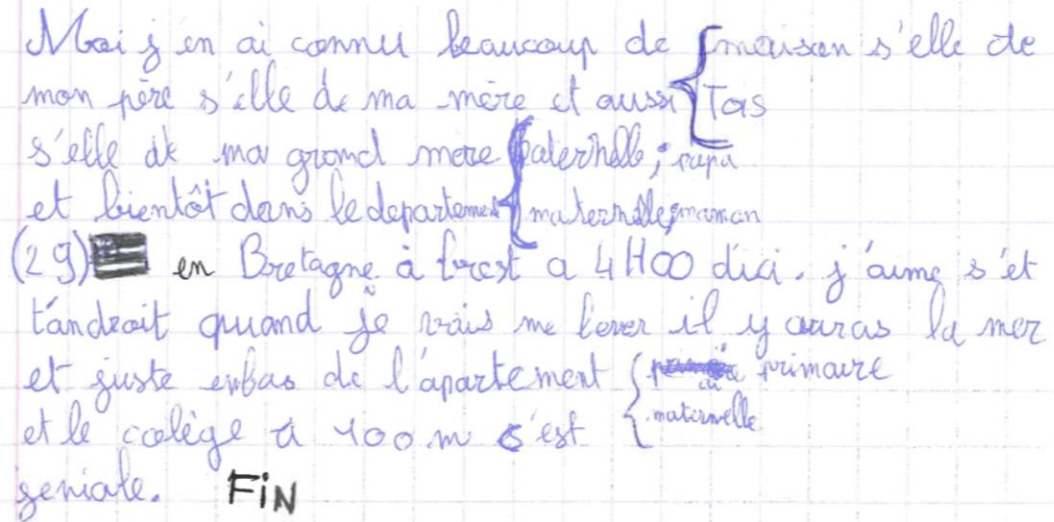 Moi j en ai connu beaucoup de { maison s'elle de
mon père s'elle de ma mère et aussi { Tois
s'elle de ma grand mere { paternelle ; papa
et bientôt dans le departement { maternelle ; maman
(29) en Bretagne à brest a 4H00 dici. j'aime s'ét
t'androit quand je vais me lever il y auras la mer
et juste enbas de l'apartement { primaire
et le colège a 100 m c'est { maternelle
geniale. FiN